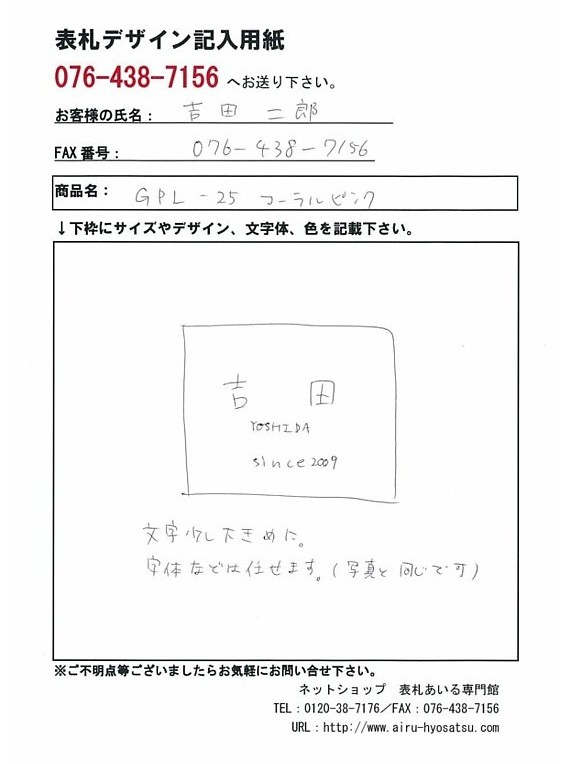 表札デザイン記入用紙
076-438-7156 へお送り下さい。
お客様の氏名： 吉田 二郎
FAX番号： 076-438-7156
商品名： GPL-25 コーラルピンク
↓下枠にサイズやデザイン、文字体、色を記載下さい。
吉 田
YOSHIDA
since 2009
文字少し大きめに。
字体などは任せます。(写真と同じで可)
※ご不明点等ございましたらお気軽にお問い合せ下さい。
ネットショップ 表札あいる専門館
TEL：0120-38-7176／FAX：076-438-7156
URL：http://www.airu-hyosatsu.com